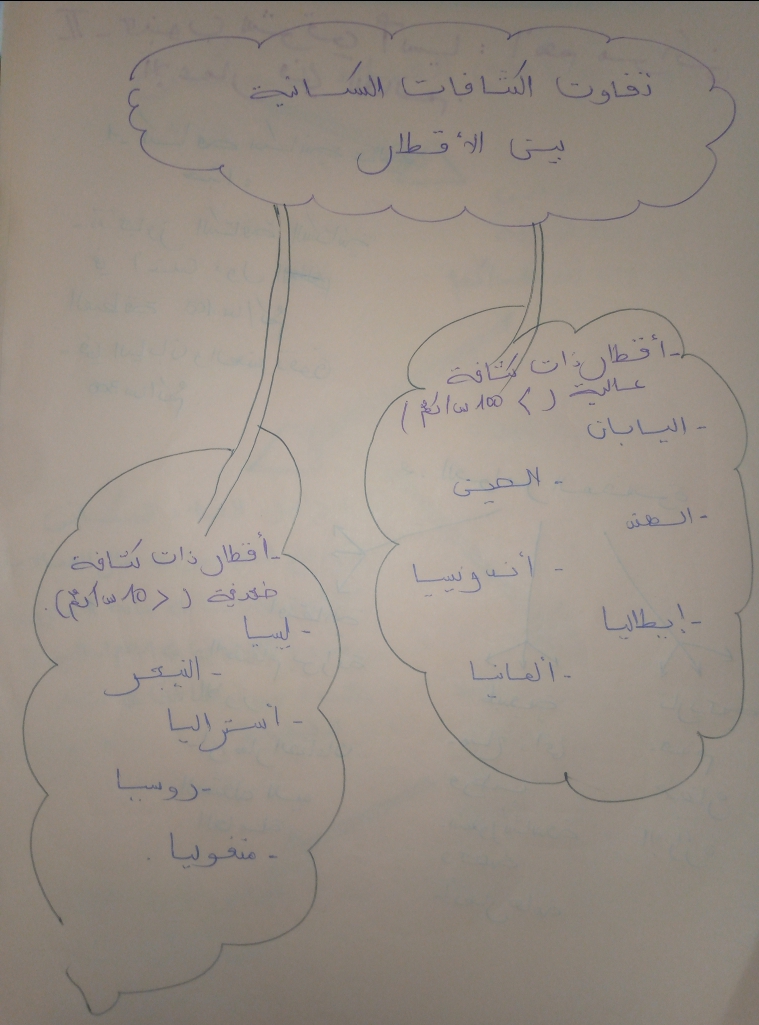 تفاوت الكثافات السكانية
بين الأقطار
- أقطار ذات كثافة
عالية ( > 100 س/كم²)
- اليابان
- الصين
- الهند
- أندونيسيا
- إيطاليا
- ألمانيا
- أقطار ذات كثافة
ضعيفة ( < 10 س/كم²).
- ليبيا
- النيجر
- أستراليا
- روسيا
- منغوليا.